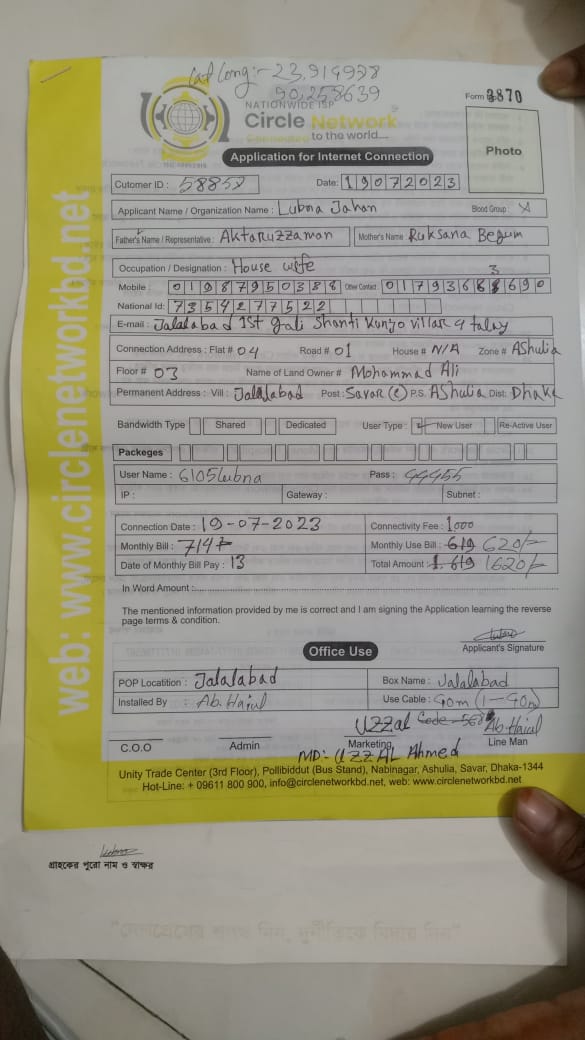 Lat Long:- 23,914928
90,258639
Form 3870
NATIONWIDE ISP
Circle Network
Connected to the world....
Application for Internet Connection
Photo
Cutomer ID : 58858 Date: 19072023
Applicant Name / Organization Name : Lubna Jahan Blood Group :
Father's Name / Representative : Aktaruzzaman Mother's Name Ruksana Begum
Occupation / Designation : House wife
Mobile : 01987950388 Other Contact :
National Id: 7354277522
E-mail : Jalalabad 1st gali Shanti Kunjo villar 4 talay
Connection Address : Flat # 04 Road # 01 House # N/A Zone # AShulia
Floor # 03 Name of Land Owner # Mohammad Ali
Permanent Address : Vill : Jalalabad Post : Savar (C) P.S. AShulia Dist: Dhaka
Bandwidth Type Shared Dedicated User Type : New User Re-Active User
Packeges
User Name : 6105lubna Pass : 44455
IP : Gateway : Subnet :
Connection Date : 19-07-2023 Connectivity Fee : 1000
Monthly Bill : 714 Monthly Use Bill : 619 620/-
Date of Monthly Bill Pay : 13 Total Amount : 1.619 1620/-
In Word Amount :
The mentioned information provided by me is correct and I am signing the Application learning the reverse
page terms & condition.
Applicant's Signature
Office Use
POP Locatition : Jalalabad Box Name : Jalalabad
Installed By : Ab. Hajul Use Cable : 90m (1-90m)
Uzzal Code - Ab. Hajul
C.O.O Admin Marketing Line Man
MD:- UZZAL Ahmed
Unity Trade Center (3rd Floor), Pollibiddut (Bus Stand), Nabinagar, Ashulia, Savar, Dhaka-1344
Hot-Line: + 09611 800 900, info@circlenetworkbd.net, web: www.circlenetworkbd.net
web: www.circlenetworkbd.net
Lubna
গ্রাহকের পুরো নাম ও স্বাক্ষর